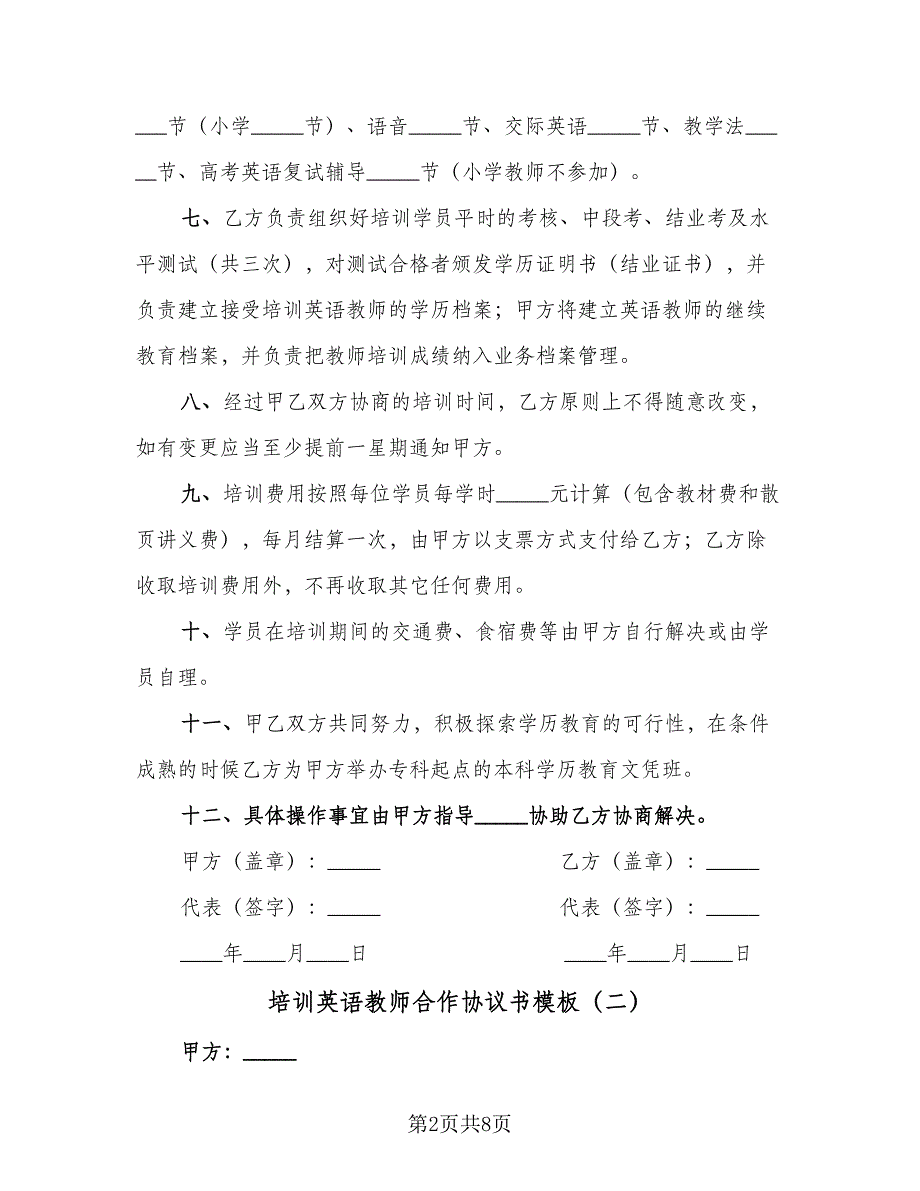 ___节（小学_____节）、语音_____节、交际英语_____节、教学法___
__节、高考英语复试辅导_____节（小学教师不参加）。
七、乙方负责组织好培训学员平时的考核、中段考、结业考及水
平测试（共三次），对测试合格者颁发学历证明书（结业证书），并
负责建立接受培训英语教师的学历档案；甲方将建立英语教师的继续
教育档案，并负责把教师培训成绩纳入业务档案管理。
八、经过甲乙双方协商的培训时间，乙方原则上不得随意改变，
如有变更应当至少提前一星期通知甲方。
九、培训费用按照每位学员每学时_____元计算（包含教材费和散
页讲义费），每月结算一次，由甲方以支票方式支付给乙方；乙方除
收取培训费用外，不再收取其它任何费用。
十、学员在培训期间的交通费、食宿费等由甲方自行解决或由学
员自理。
十一、甲乙双方共同努力，积极探索学历教育的可行性，在条件
成熟的时候乙方为甲方举办专科起点的本科学历教育文凭班。
十二、具体操作事宜由甲方指导_____协助乙方协商解决。
甲方（盖章）：_____ 乙方（盖章）：_____
代表（签字）：_____ 代表（签字）：_____
____年____月____日 ____年____月____日
培训英语教师合作协议书模板（二）
甲方：_____
第2页共8页